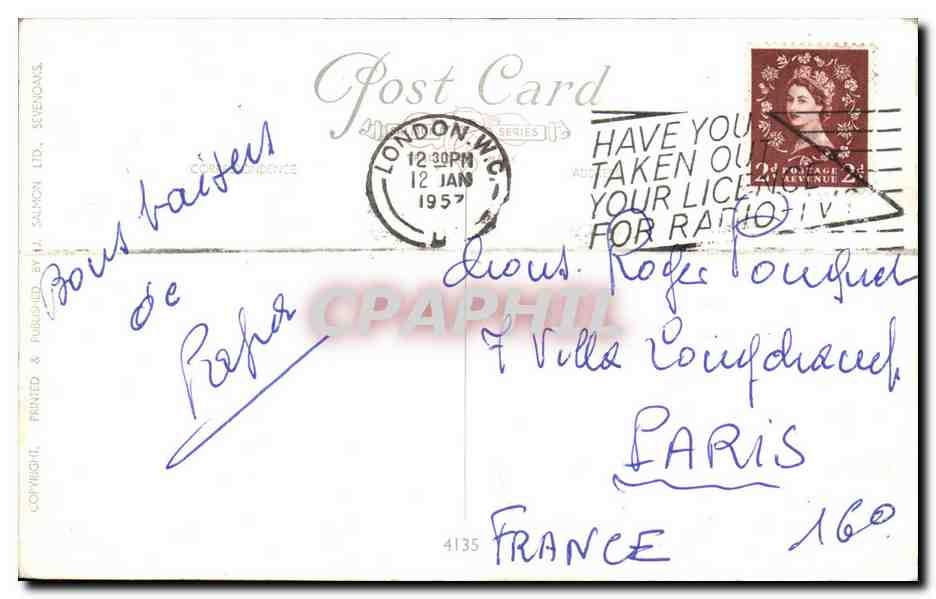 Post Card
SERIES
CORRESPONDENCE
ADDRESS
LONDON.W.C.
12 30PM
12 JAN
1957
HAVE YOU
TAKEN OUT
YOUR LICENCE
FOR RADIO-TV
2d POSTAGE REVENUE 2d
Bons baisers
de
Papa
Mons. Roger Pouquet
7 Villa Longchamp
PARIS
FRANCE 16e
4135
COPYRIGHT. PRINTED & PUBLISHED BY J. SALMON LTD., SEVENOAKS.
CPAPHIL